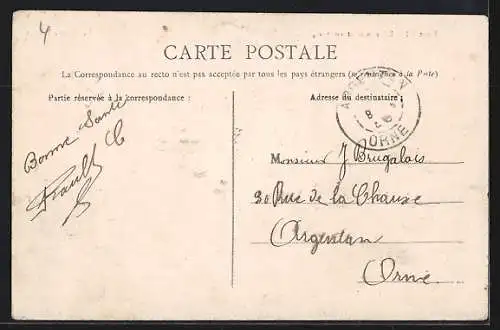 4
CARTE POSTALE
La Correspondance au recto n'est pas acceptée par tous les pays étrangers (se renseigner à la Poste)
Partie réservée à la correspondance :
Adresse du destinataire :
ARGENTAN
8
ORNE
Bonne Santé
Monsieur J Brugalais
30 Rue de la Chause
Argentan
Orne